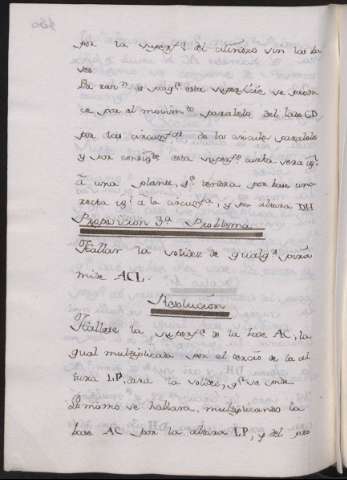 por la superf.ª del cilindro sin las ba
ses.
La razn es porq.e esta superficie se produ
ce por el movim.to paralelo del lado CD
por las circunf.as de la circulo paralelo
y por consig.te esta superf.e curba sera ig.l
à una plana, q.e tendra por base una
recta ig.l à la circunf.a, y por altura DH
Proposicion 3ª Problema
Hallar la solidez de qualq.a pirá
mide ACL.
Resolucion
Hallese la superf.e de la base AC, la
qual multiplicada por el tercio de la al
tura LP, dará la solidez, q.e se pide.
Lo mismo se hallara, multiplicando la
base AC por la altura LP, y del pro